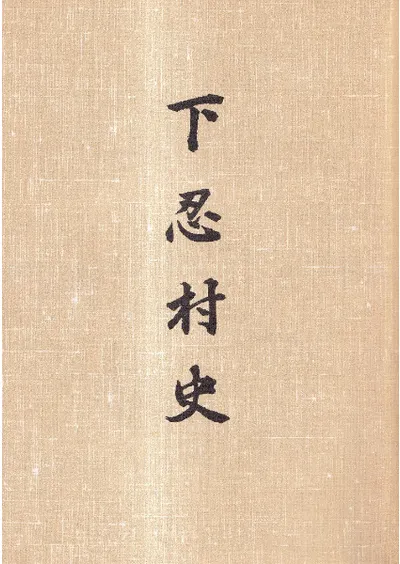 下忍村史